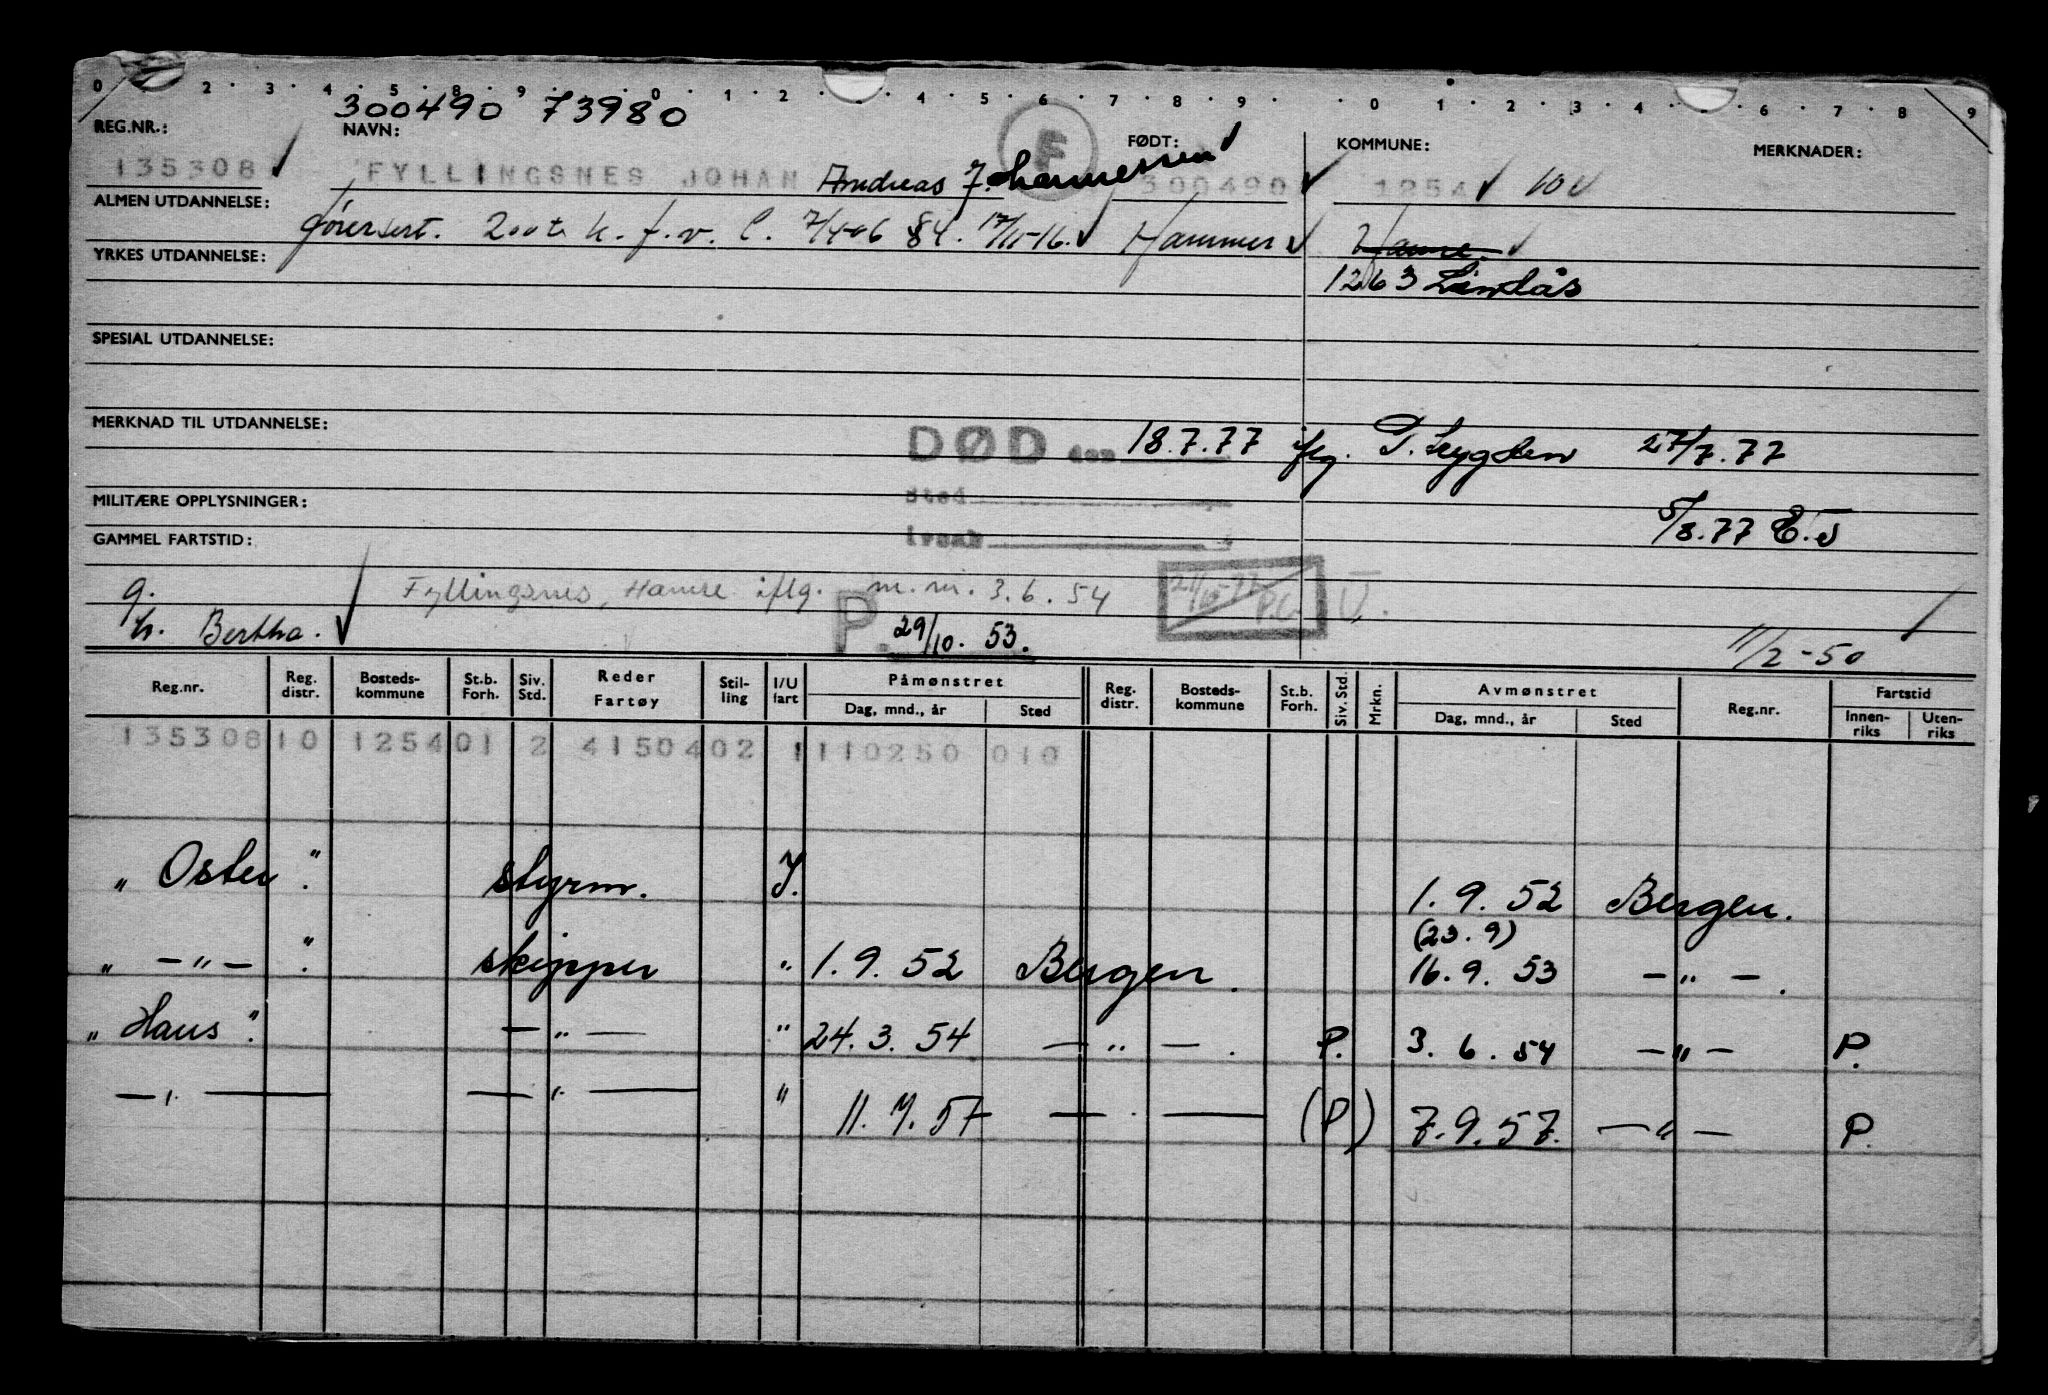 0 2 · 3 · 4 · 5 · 8 · 9 · 0 · 1 · 2 · 4 · 5 · 6 · 7 · 8 · 9 · 0 1 · 2 · 3 · 4 · 6 · 7 · 8 9
300490 73980
REG.NR.: NAVN: F FØDT: KOMMUNE: MERKNADER:
135308 FYLLINGSNES JOHAN Andreas Johannessen 300490 1254 10
ALMEN UTDANNELSE: 17/11-16. Hammer Hamre
YRKES UTDANNELSE: 1263 Lindås
SPESIAL UTDANNELSE:
MERKNAD TIL UTDANNELSE: DØD den 18.7.77 iflg. 27/7.77
sted
MILITÆRE OPPLYSNINGER: 5/8.77
GAMMEL FARTSTID:
g. Fyllingsnes, Hamre iflg. m.m. 3.6.54
h. Bertha. P. 29/10. 53. 11/2-50
Reg.nr. Reg. distr. Bosteds-kommune St.b. Forh. Siv. Std. Reder Fartøy Stil-ling I/U fart Påmønstret Dag, mnd., år Sted Reg. distr. Bosteds-kommune St.b. Forh. Siv. Std. Mrkn. Avmønstret Dag, mnd., år Sted Reg.nr. Fartstid Innen-riks Uten-riks
135308 10 1254 01 2 4150402 1 110250 010
"Oster". styrm. I. 1.9.52 Bergen.
(23.9)
" — " — ". skipper " 1.9.52 Bergen. 16.9.53 — " — .
"Haus". — " — " 24.3.54 — " — . P. 3.6.54 — " — P.
— " — — " — " 11.7.57 — " — (P) 7.9.57. — " — P.